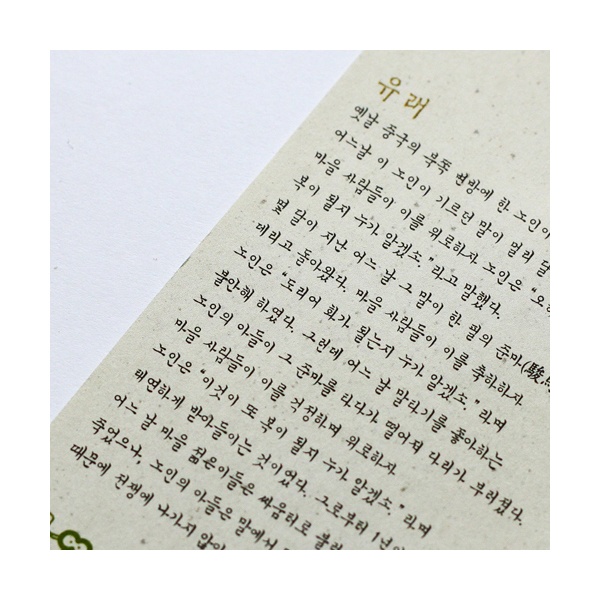 유래
옛날 중국의 북쪽 변방에 한 노인이
어느날 이 노인이 기르던 말이 멀리 달
마을 사람들이 이를 위로하자 노인은 "오히
복이 될지 누가 알겠소."라고 말했다.
몇 달이 지난 어느 날 그 말이 한 필의 준마(駿
데리고 돌아왔다. 마을 사람들이 이를 축하하자
노인은 "도리어 화가 될는지 누가 알겠소."라며
불안해 하였다. 그런데 어느 날 말타기를 좋아하는
노인의 아들이 그 준마를 타다가 떨어져 다리가 부러졌다.
마을 사람들이 이를 걱정하며 위로하자
노인은 "이것이 또 복이 될지 누가 알겠소."라며
태연하게 받아들이는 것이었다. 그로부터 1년
어느 날 마을 젊은이들은 싸움터로 불려
죽었으나, 노인의 아들은 말에서
때문에 전쟁에 나가지 않아